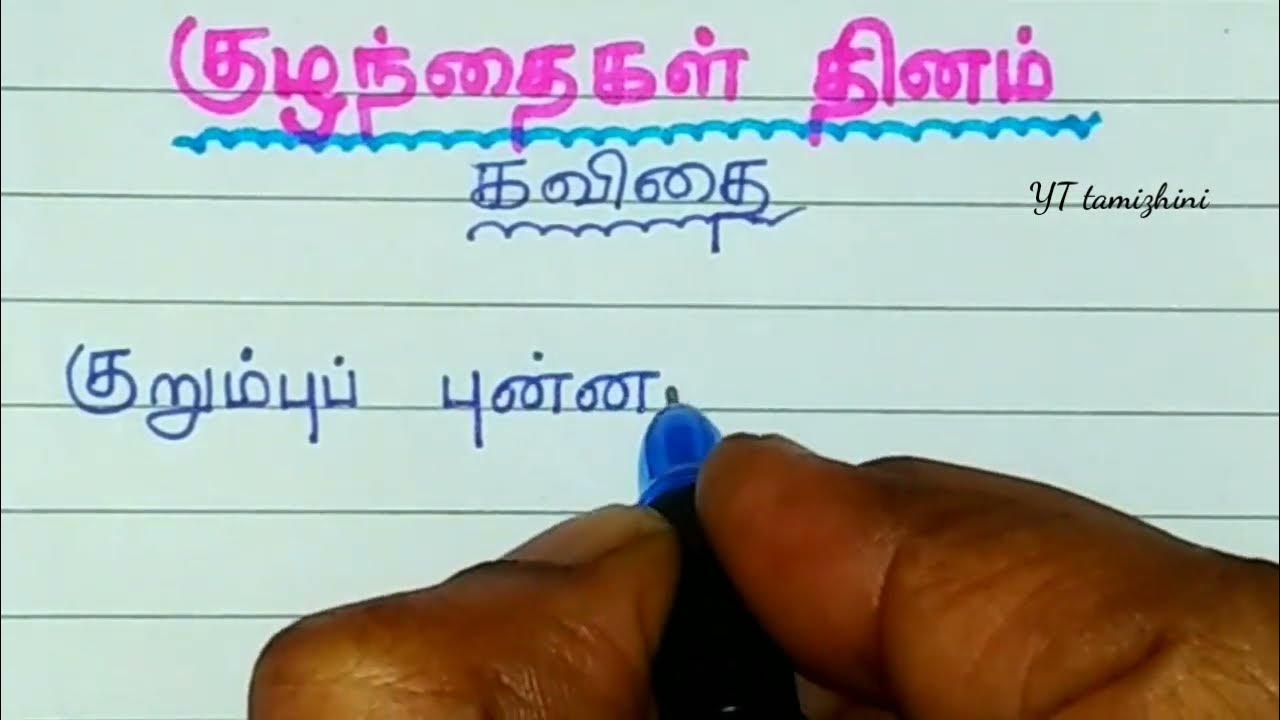 குழந்தைகள் தினம்
கவிதை
YT tamizhini
குறும்புப் புன்ன